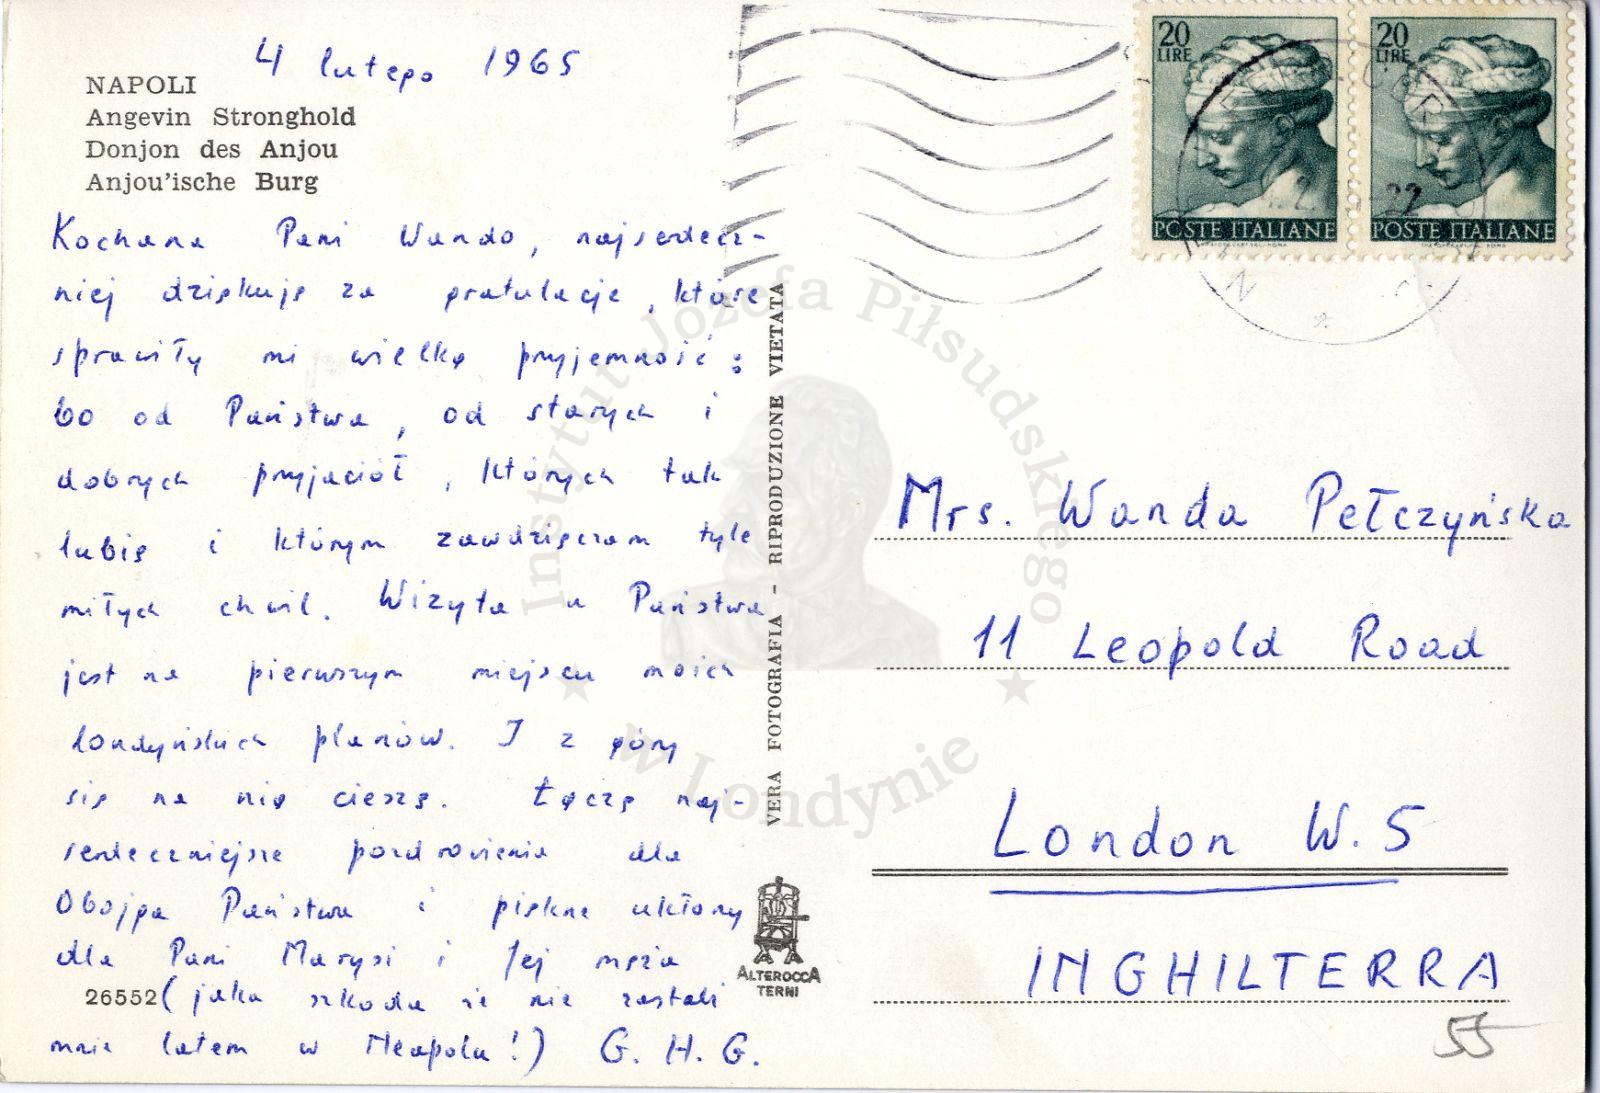 4 lutego 1965
NAPOLI
Angevin Stronghold
Donjon des Anjou
Anjou'ische Burg
Kochana Pani Wando, najserdecz-
niej dziękuję za gratulacje, które
sprawiły mi wielką przyjemność:
bo od Państwa, od starych i
dobrych przyjaciół, których tak
lubię i którym zawdzięczam tyle
miłych chwil. Wizyta u Państwa
jest na pierwszym miejscu moich
londyńskich planów. I z góry
się na nią cieszę. Łączę naj-
serdeczniejsze pozdrowienia dla
Obojga Państwa i piękne ukłony
dla Pani Marysi i Jej męża
26552 (jaka szkoda że nie zastali
mnie latem w Neapolu!) G. H. G.
VERA FOTOGRAFIA - RIPRODUZIONE VIETATA
ALTEROCCA
TERNI
20
LIRE
POSTE ITALIANE
20
LIRE
POSTE ITALIANE
Mrs. Wanda Pełczyńska
11 Leopold Road
London W. 5
INGHILTERRA
55
Instytut Józefa Piłsudskiego
w Londynie